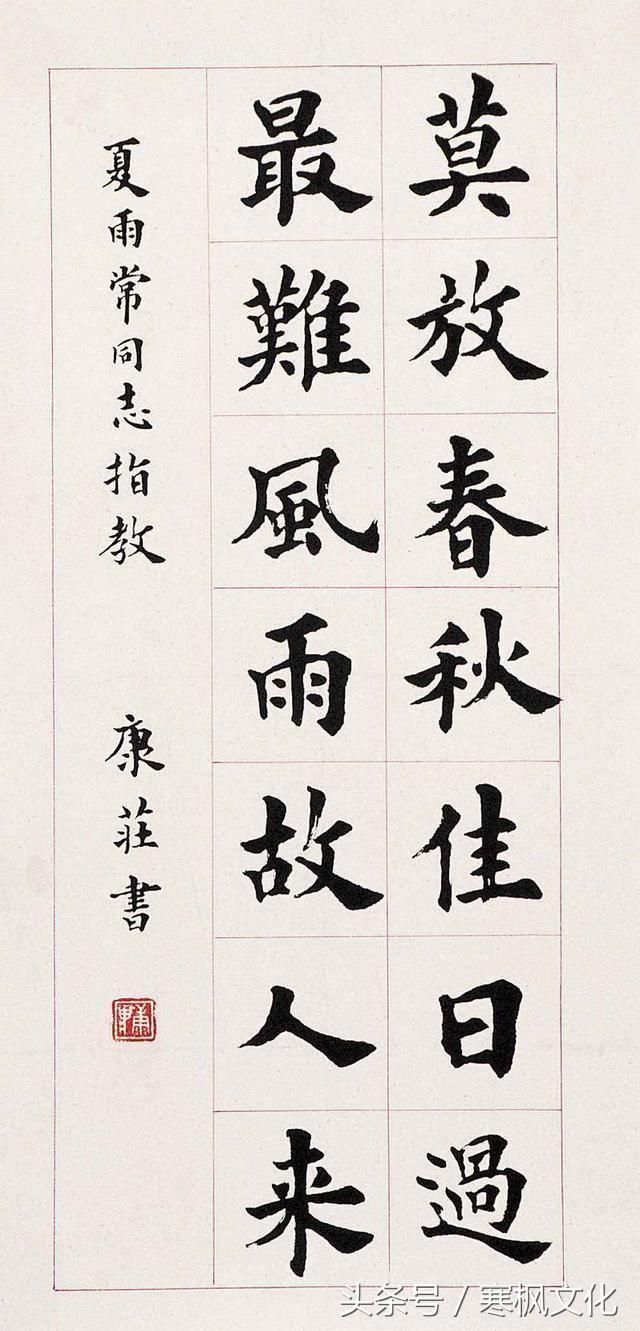 莫放春秋佳日過
最難風雨故人来
夏雨常同志指教
康莊書
头条号 / 寒枫文化